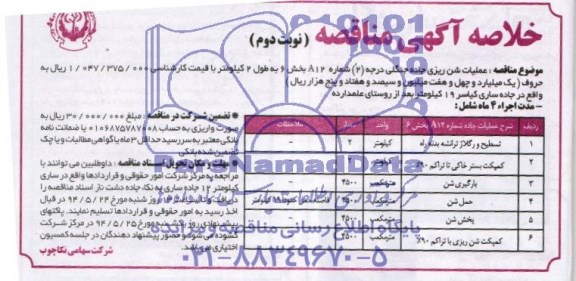 خلاصه آگهی مناقصه (نوبت دوم)
موضوع مناقصه : عملیات شن ریزی جاده جنگلی درجه (۲) شماره A۱۲ بخش ۶ به طول ۲ کیلومتر با قیمت کارشناسی ۱/۰۴۷/۳۷۵/۰۰۰ ریال به
حروف ( یک میلیارد و چهل و هفت میلیون و سیصد و هفتاد و پنج هزار ریال )
واقع در جاده ساری کیاسر ۱۹ کیلومتر بعد از روستای علمدارده
- مدت اجراء ۴ ماه شامل :
ردیف شرح عملیات جاده شماره A۱۲ بخش ۶ واحد مقدار ملاحظات
۱ تسطیح و رگلاژ ترانشه بدنه راه کیلومتر ۲ -
۲ کمپکت بستر خاکی تا تراکم ۹۰٪ کیلومتر
۳ بارگیری شن مترمکعب ۴۵۰۰ -
۴ حمل شن مترمکعب ۴۵۰۰
۵ پخش شن مترمکعب ۴۵۰۰ -
۶ کمپکت شن ریزی با تراکم ۹۰٪ مترمکعب ۴۵۰۰ -
* تضمین شرکت در مناقصه : مبلغ ۳۰/۰۰۰/۰۰۰ ریال به
صورت واریزی به حساب ۰۱۰۶۸۷۵۷۸۷۰۰۸ یا ضمانت نامه
بانکی معتبر به سررسید حداقل ۳ ماه یا گواهی مطالبات و یا چک
تضمین شده بانکی
* محل و مهلت تحویل اسناد مناقصه : داوطلبین می توانند با
مراجعه به مرکز شرکت امور حقوقی و قراردادها واقع در ساری
کیلومتر ۱۲ جاده ساری به نکاء جاده دشت ناز اسناد مناقصه را
دریافت و روز شنبه مورخ ۹۴/۵/۲۴ در قبال
اخذ رسید به امور حقوقی و قراردادها تسلیم نمایند. پاکتهای
پیشنهادی روز یکشنبه مورخ ۹۴/۵/۲۵ در مرکز شرکت
گشوده می شود و حضور پیشنهاد دهندگان در جلسه کمیسیون
اختیاری می باشد.
شرکت سهامی نکاچوب
NamadData
پایگاه اطلاع رسانی مناقصه و مزایده
۰۲۱-۸۸۳۴۹۶۷۰-۵